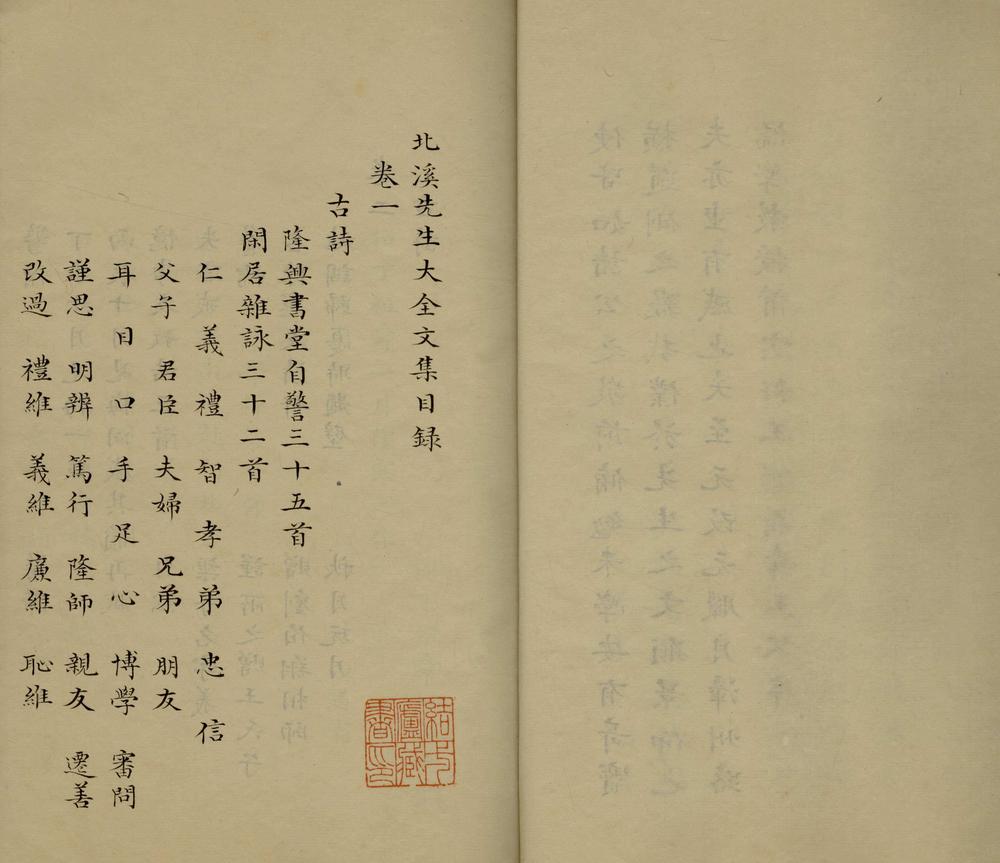 北溪先生大全文集目録
卷一
古詩
隆興書堂自警三十五首
閑居雜詠三十二首
仁 義 禮 智 孝 弟 忠 信
父子 君臣 夫婦 兄弟 朋友
耳 目 口 手 足 心 博學 審問
謹思 明辨 篤行 隆師 親友 遷善
改過 禮維 義維 廉維 恥維